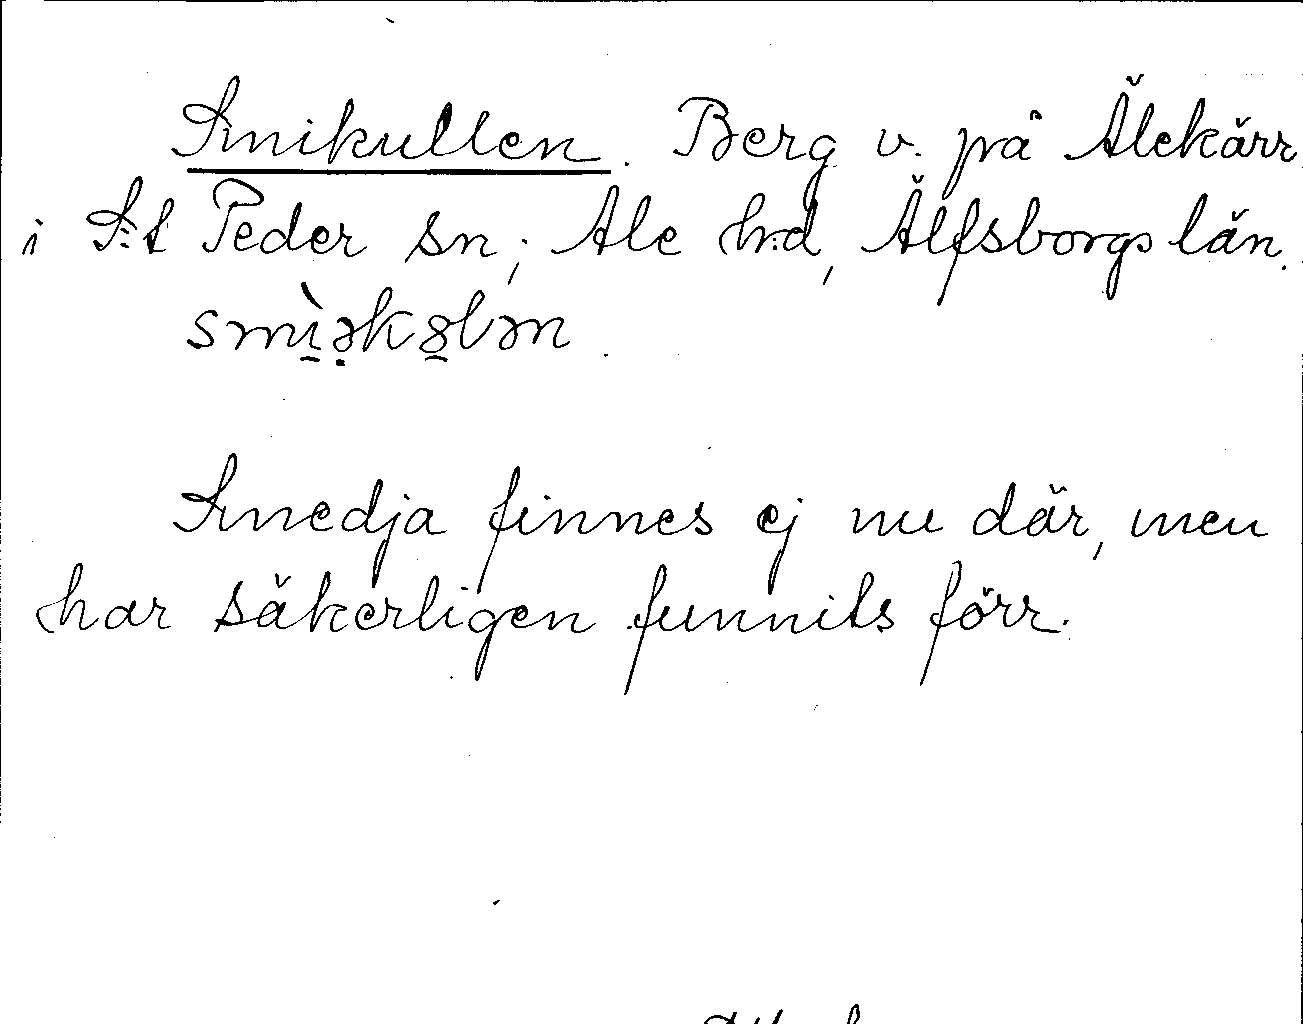 Smikullen. Berg v. på Älekärr
i S:t Peder sn; Ale hrd, Älfsborgs län.
smı̱̀ə̣kꞵ̱lən.
Smedja finnes ej nu där, men
har säkerligen funnits förr.